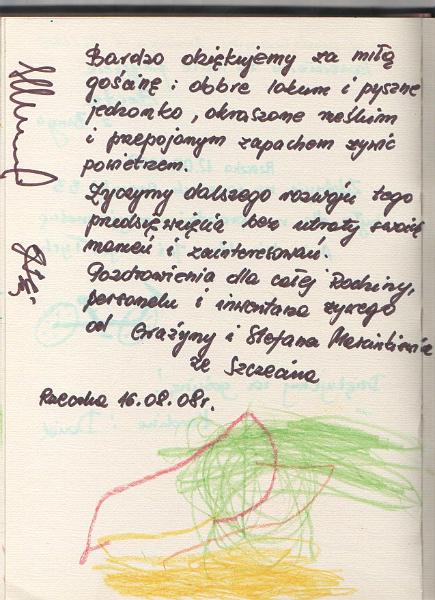 Bardzo dziękujemy za miłą
gościnę i dobre lokum i pyszne
jedzonko, okraszone rześkim
i przepojonym zapachem żywic
powietrzem.
Życzymy dalszego rozwoju tego
przedsięwzięcia bez utraty swoich
marzeń i zainteresowań.
Pozdrowienia dla całej Rodziny,
personelu i inwentarza żywego
od Grażyny i Stefana
ze Szczecina
Rzeczka 16.08.08r.